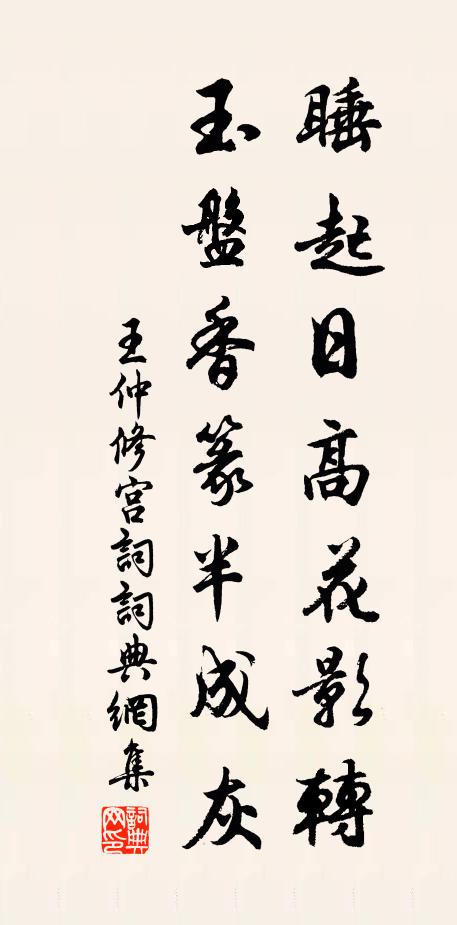 睡起日高花影轉
玉盤香篆半成灰
王仲修宮詞詞典網集
詞典網印